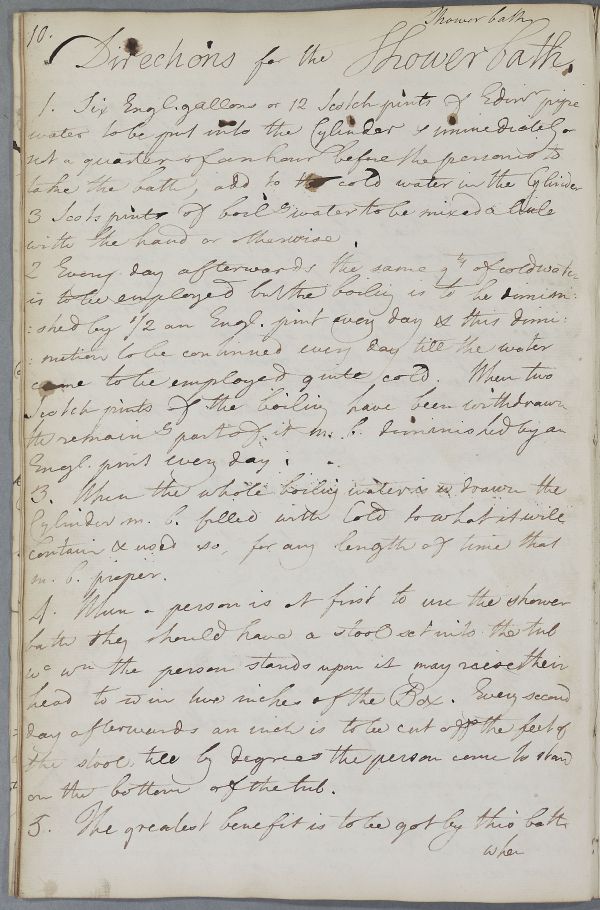 10.
Shower bath
Directions for the Shower bath.
1. Six Engl. gallons or 12 Scotch pints of Edinr pipe
water to be put into the Cylinder & immediately or
not a quarter of an hour before the person is to
take the bath, add to the cold water in the Cylinder
3 Scots pints of boilg water to be mixed a little
with the hand or otherwise.
2 Every day afterwards the same qty of cold water
is to be employed but the boiling is to be dimini:
:shed by 1/2 an Engl. pint every day & this dimi:
:nution to be continued every day till the water
come to be employed quite cold. When two
Scotch pints of the boiling have been withdrawn
the remaing part of it m. b. diminished by an
Engl. pint every day.
3. When the whole boiling water is wdrawn the
Cylinder m. b. filled with Cold to what it will
contain & used so, for any length of time that
m. b. proper.
4. When a person is at first to use the shower
bath they should have a stool set into the tub
wc wn the person stands upon it may raise their
head to win two inches of the Box. Every second
day afterwards an inch is to be cut off the feet of
the stool till by degrees the person come to stand
on the bottom of the tub.
5. The greatest benefit is to be got by this bath
when